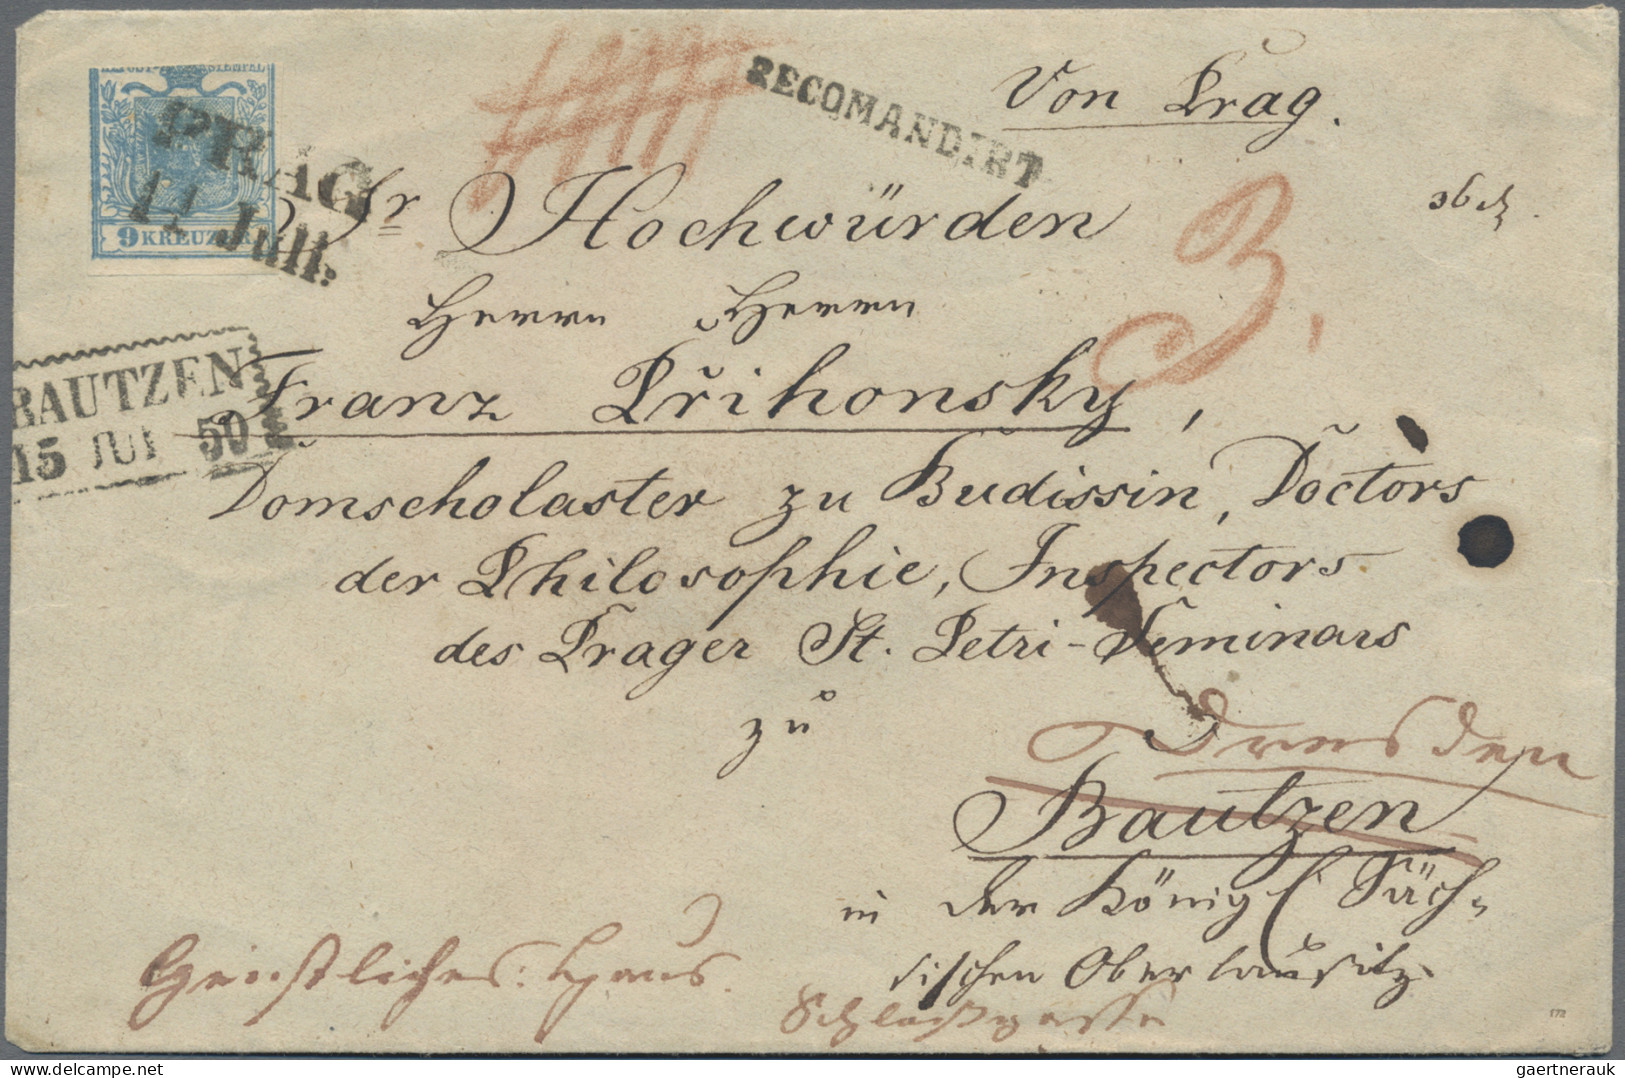 9 KREUZER
PRAG
14 Juli:
RECOMANDIRT
Von Prag.
Sr Hochwürden
3.
Herrn Herrn
BAUTZEN
15 JUL 50
Franz Přihonsky,
Domscholaster zu Budissin, Doctors
der Philosophie, Inspectors
des Prager St. Petri-Seminars
zu
Dresden
Bautzen
in der Königl Säch-
sischen Oberlausitz.
Geistliches Haus.
Schloßgasse
gaertnerauk